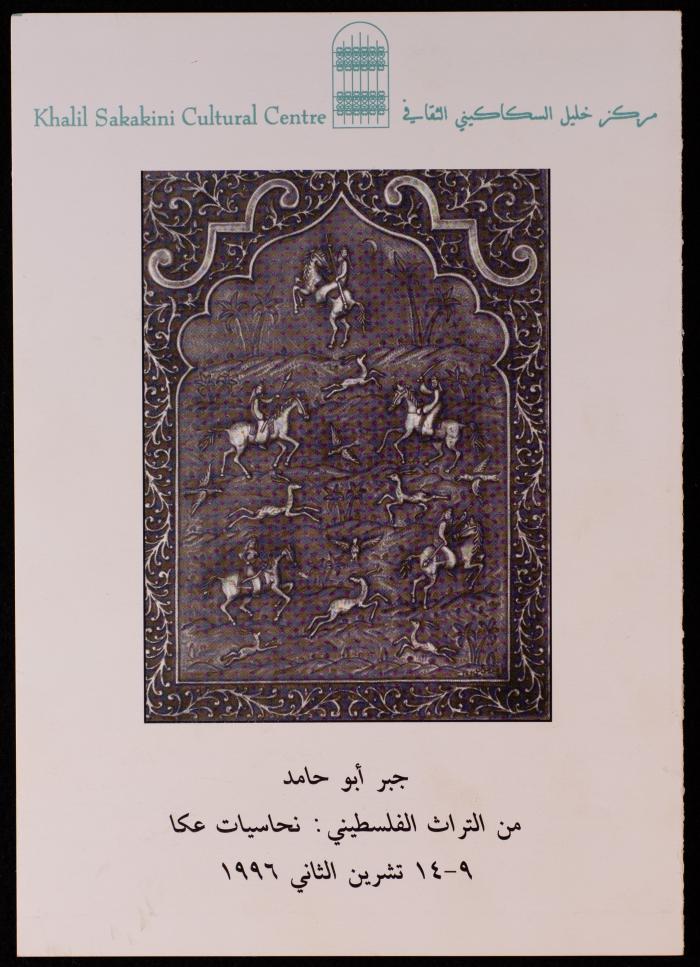 Khalil Sakakini Cultural Centre مركز خليل السكاكيني الثقافي
جبر أبو حامد
من التراث الفلسطيني: نحاسيات عكا
٩-١٤ تشرين الثاني ١٩٩٦